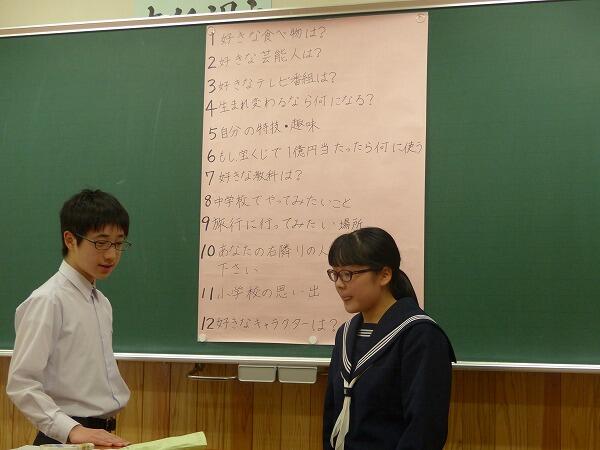 1 好きな食べ物は?
2 好きな芸能人は?
3 好きなテレビ番組は?
4 生まれ変わるなら何になる?
5 自分の特技・趣味
6 もし、宝くじで1億円当たったら何に使う
7 好きな教科は?
8 中学校でやってみたいこと
9 旅行に行ってみたい場所
10 あなたの右隣りの人
下さい
11 小学校の思い出
12 好きなキャラクターは?